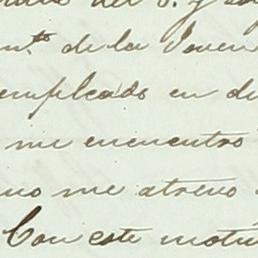 del S. y
n.to de la Joven
empleado en di
me encuentro
no me atrevo
Con este motiv